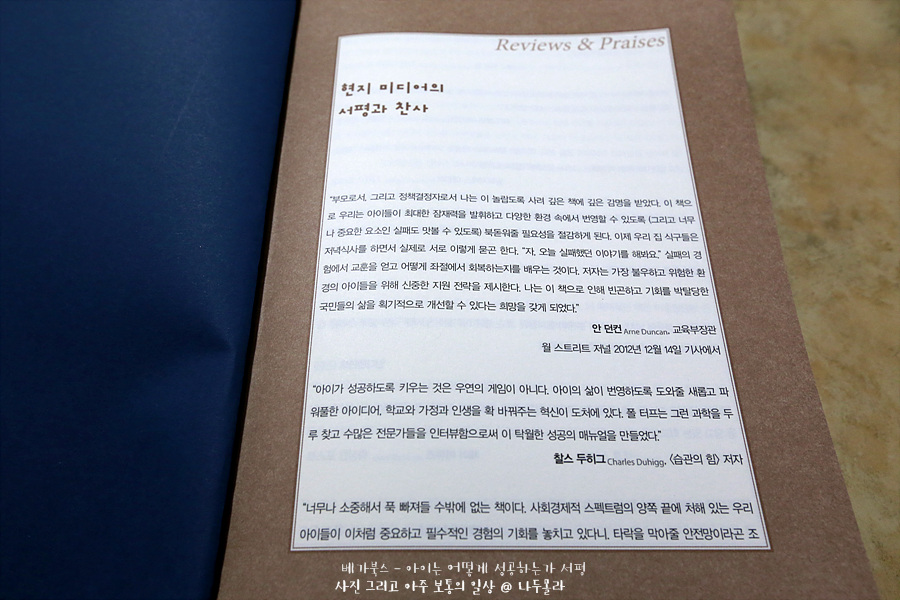 Reviews & Praises
현지 미디어의
서평과 찬사
"부모로서, 그리고 정책결정자로서 나는 이 놀랍도록 사려 깊은 책에 깊은 감명을 받았다. 이 책으
로 우리는 아이들이 최대한 잠재력을 발휘하고 다양한 환경 속에서 번영할 수 있도록 (그리고 너무
나 중요한 요소인 실패도 맛볼 수 있도록) 북돋워줄 필요성을 절감하게 된다. 이제 우리 집 식구들은
저녁식사를 하면서 실제로 서로 이렇게 묻곤 한다. "자, 오늘 실패했던 이야기를 해봐요." 실패의 경
험에서 교훈을 얻고 어떻게 좌절에서 회복하는지를 배우는 것이다. 저자는 가장 불우하고 위험한 환
경의 아이들을 위해 신중한 지원 전략을 제시한다. 나는 이 책으로 인해 빈곤하고 기회를 박탈당한
국민들의 삶을 획기적으로 개선할 수 있다는 희망을 갖게 되었다."
안 던컨 Arne Duncan, 교육부장관
월 스트리트 저널 2012년 12월 14일 기사에서
"아이가 성공하도록 키우는 것은 우연의 게임이 아니다. 아이의 삶이 번영하도록 도와줄 새롭고 파
워풀한 아이디어, 학교와 가정과 인생을 확 바꿔주는 혁신이 도처에 있다. 폴 터프는 그런 과학을 두
루 찾고 수많은 전문가들을 인터뷰함으로써 이 탁월한 성공의 매뉴얼을 만들었다."
찰스 두히그 Charles Duhigg, 〈습관의 힘〉 저자
"너무나 소중해서 푹 빠져들 수밖에 없는 책이다. 사회경제적 스펙트럼의 양쪽 끝에 처해 있는 우리
아이들이 이처럼 중요하고 필수적인 경험의 기회를 놓치고 있다니, 타락을 막아줄 안전망이라곤 조
베가북스 - 아이는 어떻게 성공하는가 서평
사진 그리고 아주 보통의 일상 @ 나두몰라